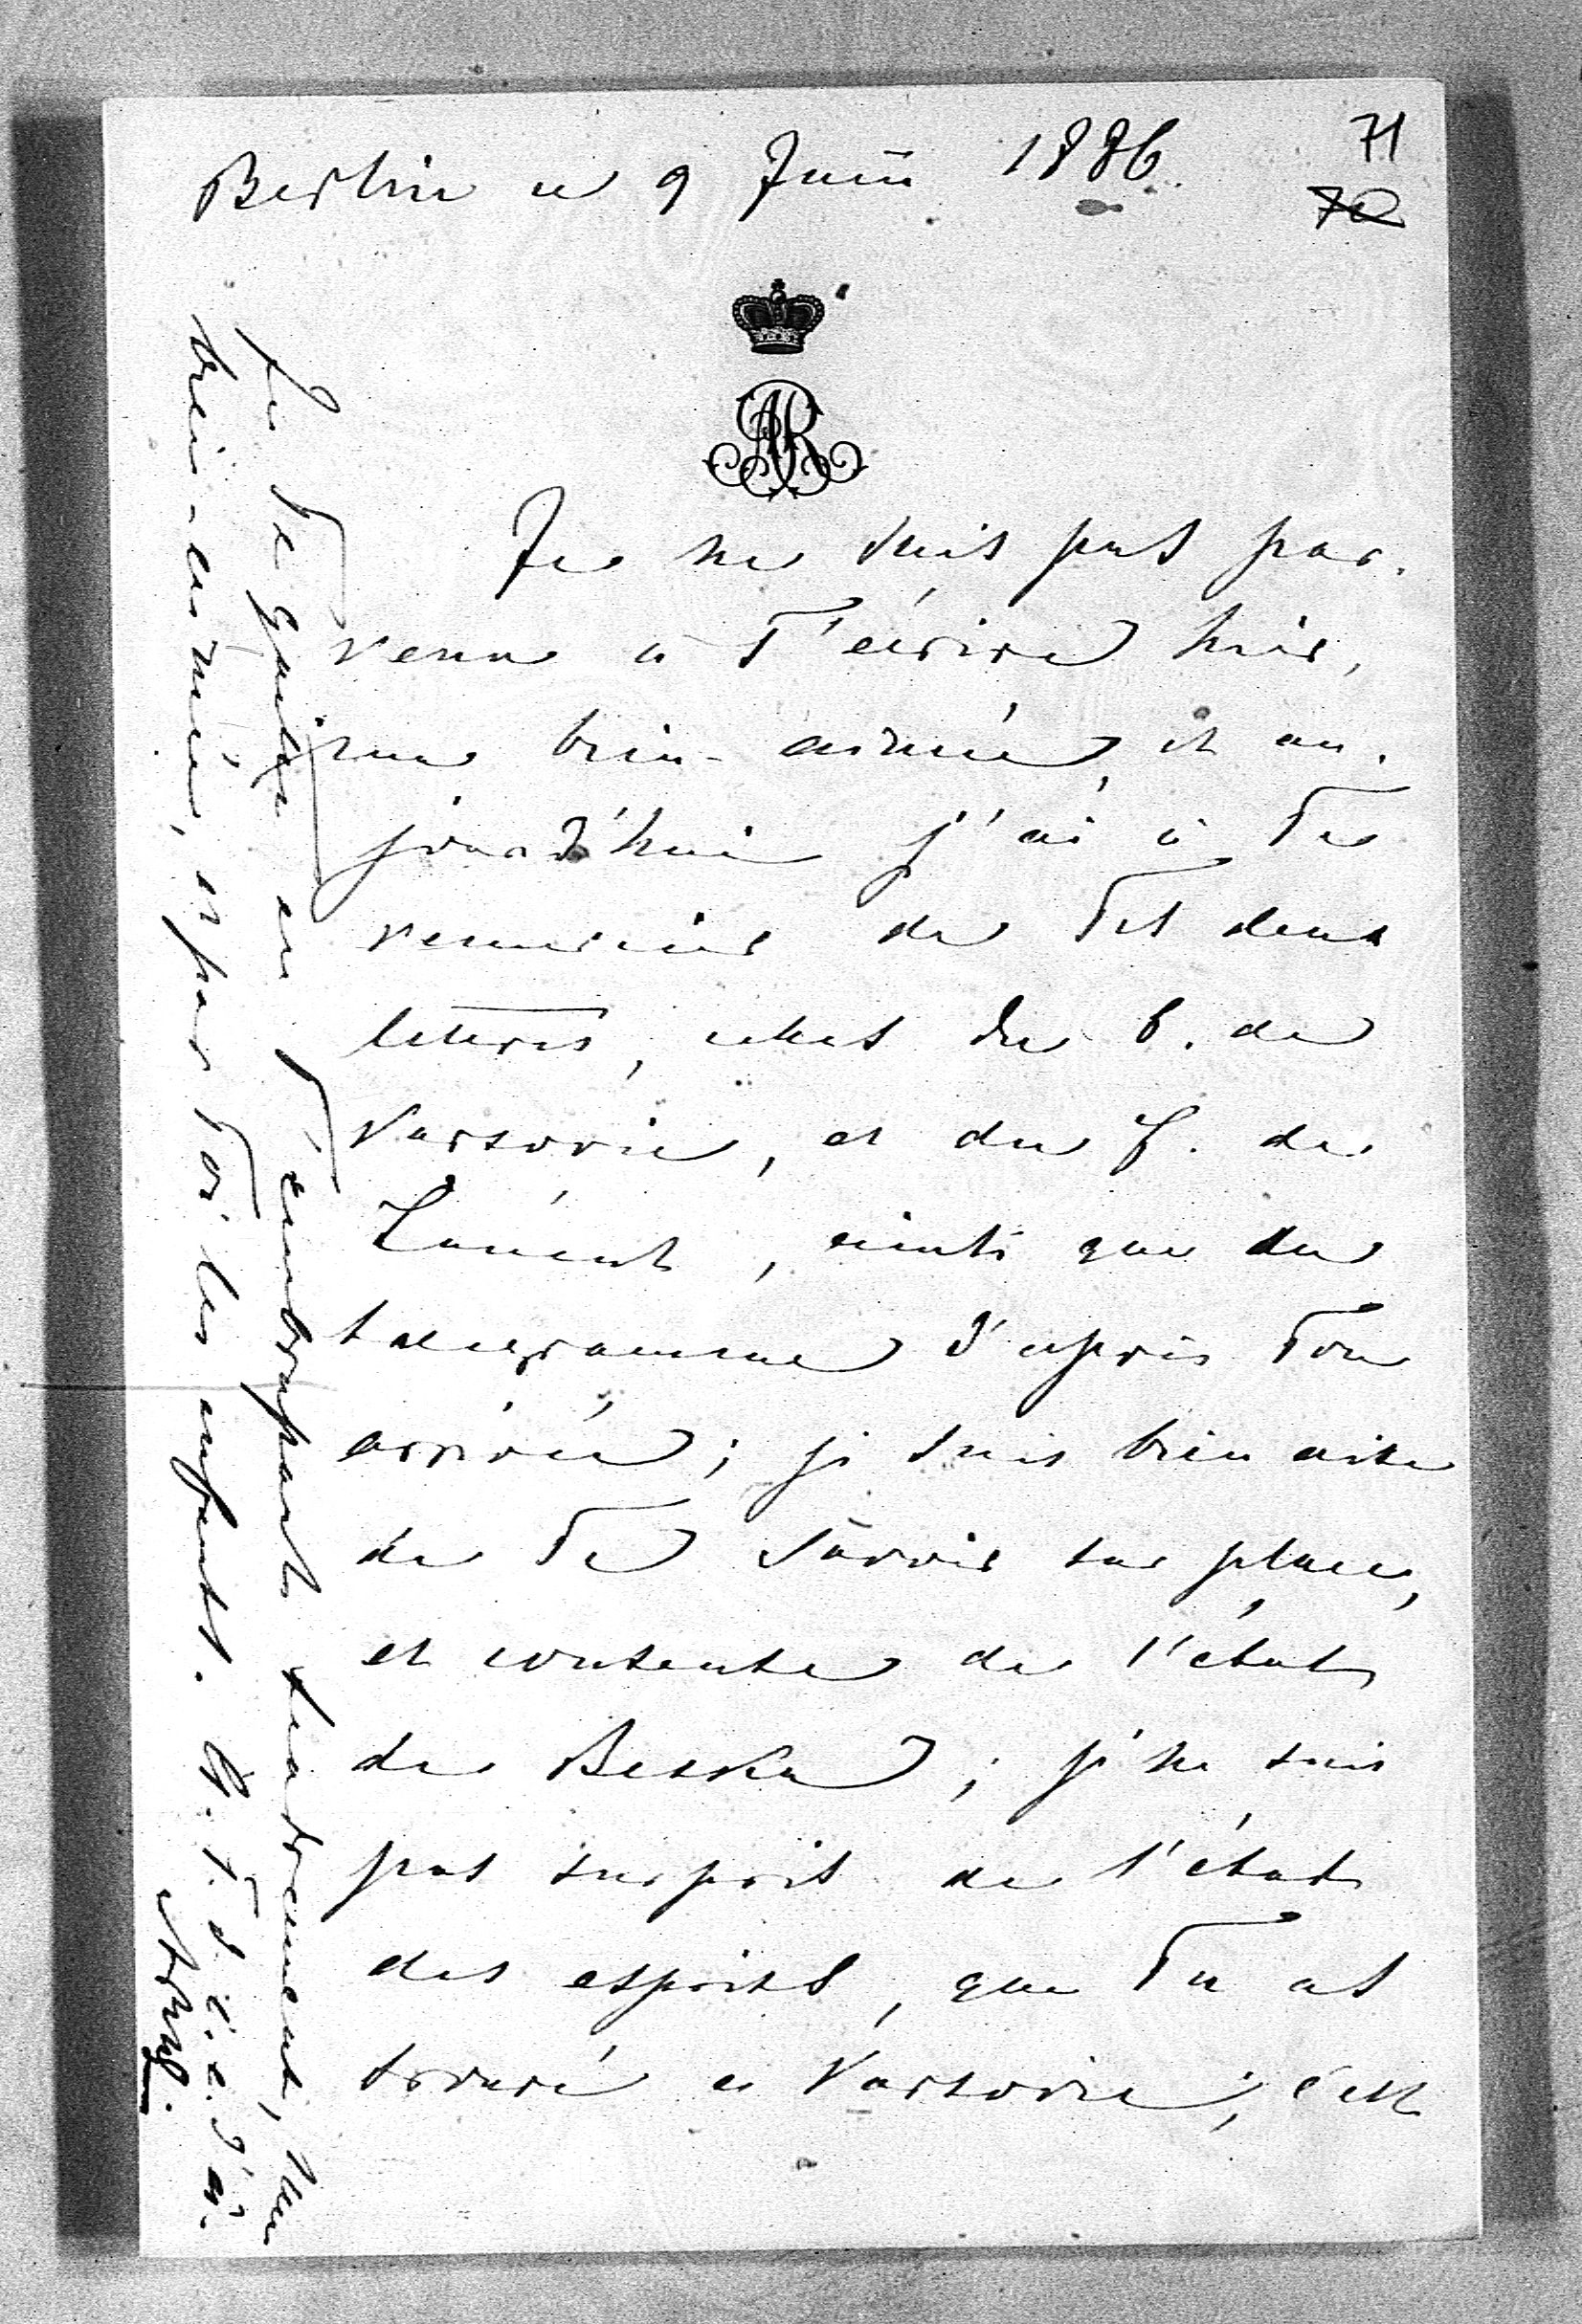 71
70
Berlin ce 9 Juin 1886.
AR
Je ne suis pas par-
venu à T'écrire hier,
ma bien-aimée, et au-
jourd'hui j'ai à Te
remercier de Tes deux
lettres, celles du 6. de
Varsovie, et du 7. de
Lancut, ainsi que du
télégramme d'après Ton
arrivée; je suis bien aise
de Te savoir sur place,
et contente de l'état
de Beska; je ne suis
pas surpris de l'état
des esprits, que Tu as
trouvé à Varsovie; c'est
Je Te quitte en T'embrassant tendrement, Ma
bien-aimée, et par Toi les enfants. A. T. d. c. e. d'a.